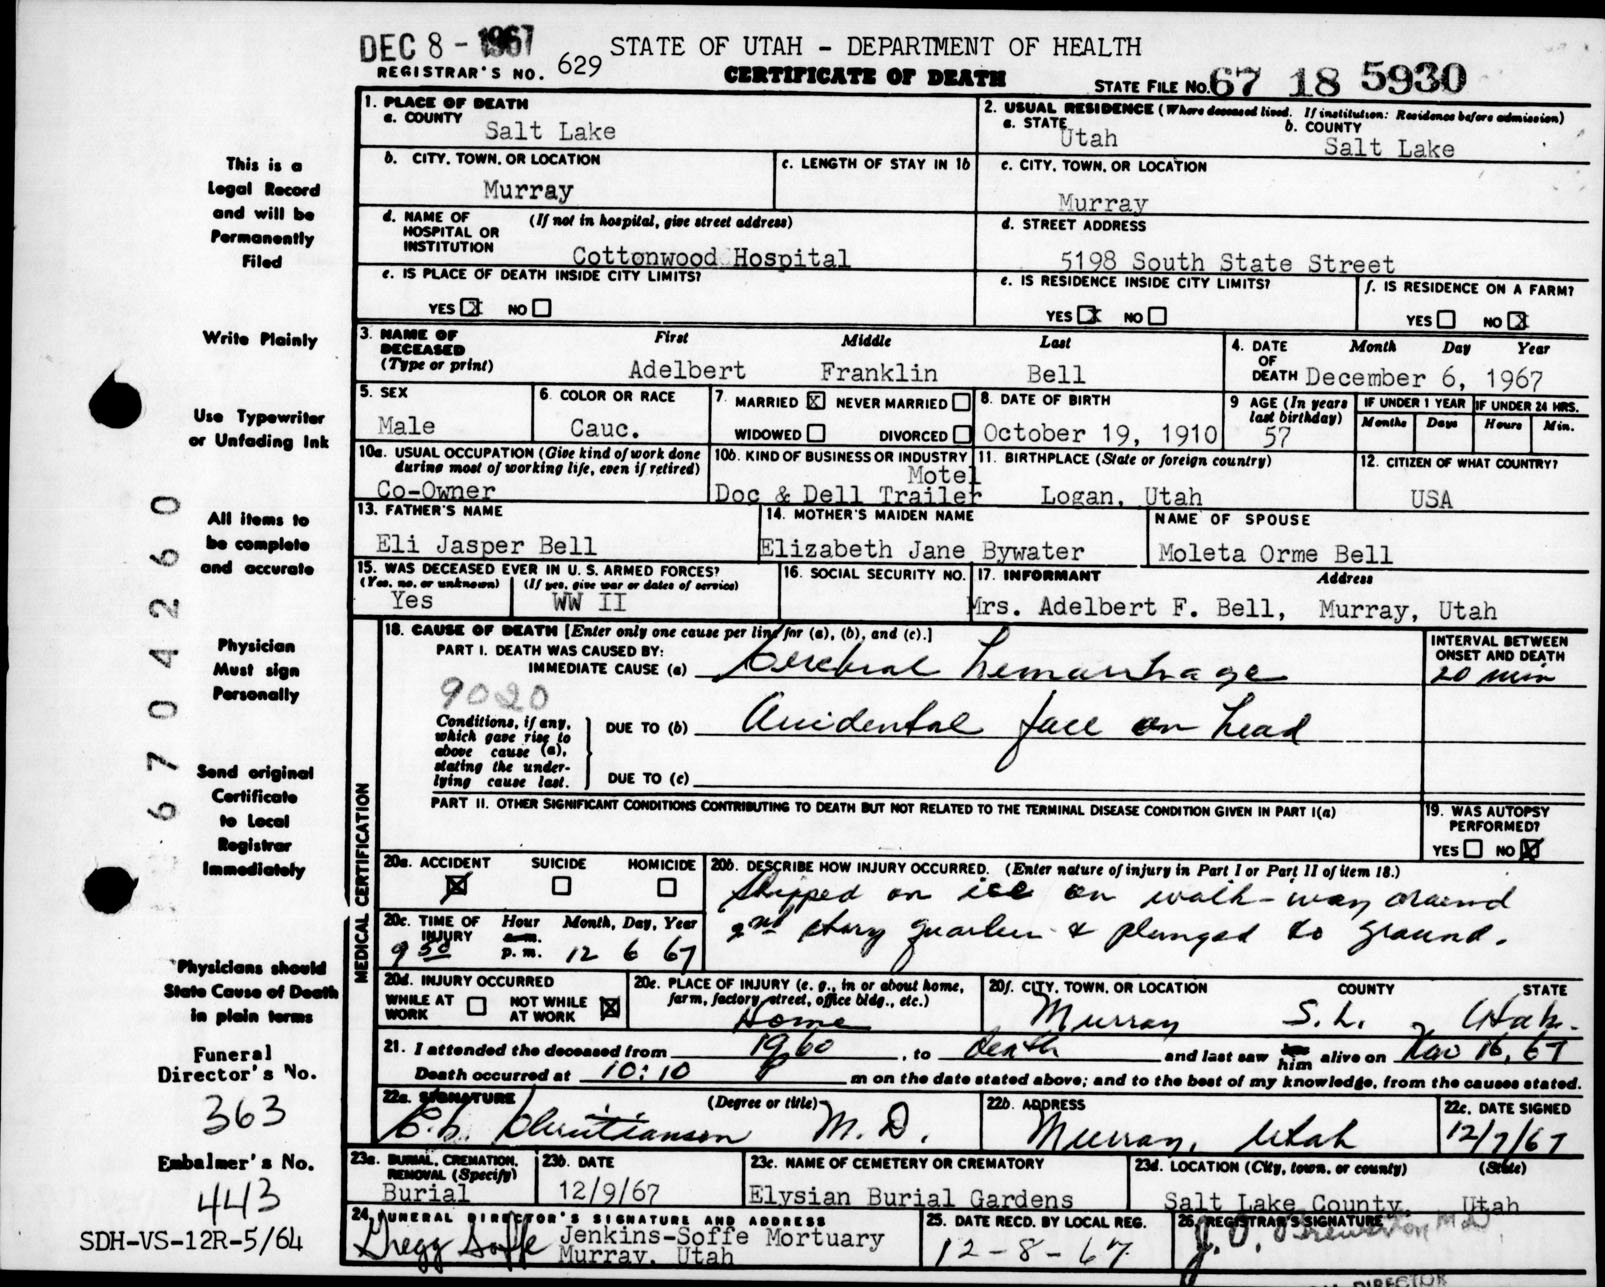 DEC 8 - 1967
STATE OF UTAH - DEPARTMENT OF HEALTH
REGISTRAR'S NO. 629
CERTIFICATE OF DEATH
STATE FILE NO. 67 18 5930
This is a
Legal Record
and will be
Permanently
Filed
Write Plainly
Use Typewriter
or Unfading Ink
All items to
be complete
and accurate
Physician
Must sign
Personally
Send original
Certificate
to Local
Registrar
Immediately
Physicians should
State Cause of Death
in plain terms
Funeral
Director's No.
363
Embalmer's No.
443
SDH-VS-12R-5/64
67 04260
1. PLACE OF DEATH
a. COUNTY
Salt Lake
2. USUAL RESIDENCE (Where deceased lived. If institution: Residence before admission)
a. STATE b. COUNTY
Utah Salt Lake
b. CITY, TOWN, OR LOCATION c. LENGTH OF STAY IN 1b
Murray
c. CITY, TOWN, OR LOCATION
Murray
d. NAME OF (If not in hospital, give street address)
HOSPITAL OR
INSTITUTION
Cottonwood Hospital
d. STREET ADDRESS
5198 South State Street
e. IS PLACE OF DEATH INSIDE CITY LIMITS?
YES X NO
e. IS RESIDENCE INSIDE CITY LIMITS?
YES X NO
f. IS RESIDENCE ON A FARM?
YES NO X
3. NAME OF First Middle Last
DECEASED
(Type or print)
Adelbert Franklin Bell
4. DATE Month Day Year
OF
DEATH December 6, 1967
5. SEX
Male
6. COLOR OR RACE
Cauc.
7. MARRIED X NEVER MARRIED
WIDOWED DIVORCED
8. DATE OF BIRTH
October 19, 1910
9 AGE (In years
last birthday)
57
IF UNDER 1 YEAR IF UNDER 24 HRS.
Months Days Hours Min.
10a. USUAL OCCUPATION (Give kind of work done
during most of working life, even if retired)
Co-Owner
10b. KIND OF BUSINESS OR INDUSTRY
Motel
Doc & Dell Trailer
11. BIRTHPLACE (State or foreign country)
Logan, Utah
12. CITIZEN OF WHAT COUNTRY?
USA
13. FATHER'S NAME
Eli Jasper Bell
14. MOTHER'S MAIDEN NAME
Elizabeth Jane Bywater
NAME OF SPOUSE
Moleta Orme Bell
15. WAS DECEASED EVER IN U. S. ARMED FORCES?
(Yes, no, or unknown) (If yes, give war or dates of service)
Yes WW II
16. SOCIAL SECURITY NO.
17. INFORMANT Address
Mrs. Adelbert F. Bell, Murray, Utah
MEDICAL CERTIFICATION
18. CAUSE OF DEATH [Enter only one cause per line for (a), (b), and (c).]
PART I. DEATH WAS CAUSED BY:
IMMEDIATE CAUSE (a) Cerebral hemorrhage
INTERVAL BETWEEN
ONSET AND DEATH
20 min
9020
Conditions, if any,
which gave rise to
above cause (a),
stating the under-
lying cause last.
DUE TO (b) Accidental fall on head
DUE TO (c)
PART II. OTHER SIGNIFICANT CONDITIONS CONTRIBUTING TO DEATH BUT NOT RELATED TO THE TERMINAL DISEASE CONDITION GIVEN IN PART I(a)
19. WAS AUTOPSY
PERFORMED?
YES NO X
20a. ACCIDENT SUICIDE HOMICIDE
X
20b. DESCRIBE HOW INJURY OCCURRED. (Enter nature of injury in Part I or Part II of item 18.)
Slipped on ice on walk-way around
2nd story quarters & plunged to ground.
20c. TIME OF Hour Month, Day, Year
INJURY a.m.
9 50 p.m. 12 6 67
20d. INJURY OCCURRED
WHILE AT WORK NOT WHILE AT WORK X
20e. PLACE OF INJURY (e. g., in or about home,
farm, factory, street, office bldg., etc.)
Home
20f. CITY, TOWN, OR LOCATION COUNTY STATE
Murray S. L. Utah.
21. I attended the deceased from 1960, to death and last saw him alive on Nov 16, 67
Death occurred at 10:10 P m on the date stated above; and to the best of my knowledge, from the causes stated.
22a. SIGNATURE (Degree or title)
C. L. Christianson M. D.
22b. ADDRESS
Murray, Utah
22c. DATE SIGNED
12/7/67
23a. BURIAL, CREMATION,
REMOVAL (Specify)
Burial
23b. DATE
12/9/67
23c. NAME OF CEMETERY OR CREMATORY
Elysian Burial Gardens
23d. LOCATION (City, town, or county) (State)
Salt Lake County, Utah
24. FUNERAL DIRECTOR'S SIGNATURE AND ADDRESS
Gregg Soffe Jenkins-Soffe Mortuary
Murray, Utah
25. DATE RECD. BY LOCAL REG.
12-8-67
26. REGISTRAR'S SIGNATURE
DIRECTOR